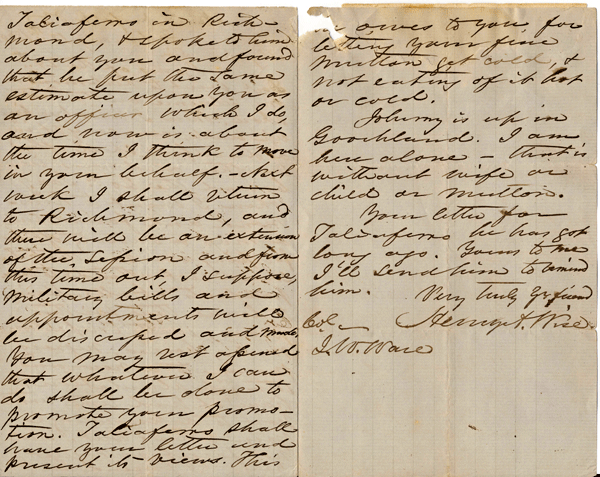 Taliaferro in Rich-
mond, & spoke to him
about you and found
that he put the same
estimate upon you as
an officer which I do,
and now is about
the time I think to move
in your behalf. - Next
week I shall return
to Richmond, and
there will be an extension
of the session and from
this time out, I suppose,
military bills and
appointments will
be discussed and made.
You may rest assured
that whatever I can
do shall be done to
promote your promo-
tion. Taliaferro shall
have your letter and
present its views. This
owes to you for
letting your fine
mutton get cold, &
not eating of it hot
or cold.
Johnny is up in
Goochland. I am
here alone - that is
without wife or
child or mutton.
Your letter for
Taliaferro he has got
long ago. Yours to me
I'll send him to remind
him.
Very truly Yr friend
Henry A. Wise.
Col.
J. W. Ware